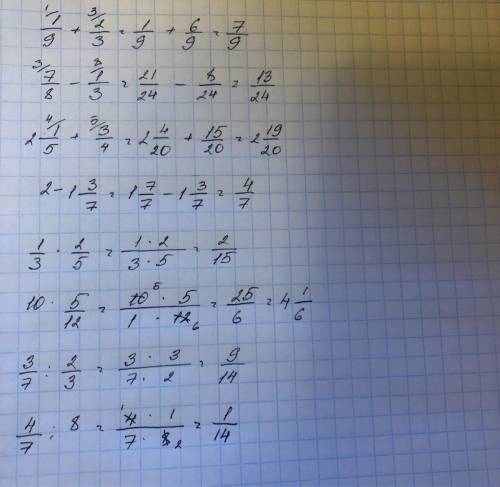 ¹⁄1/9 + ³⁄2/3 = 1/9 + 6/9 = 7/9
³⁄7/8 − ⁸⁄1/3 = 21/24 − 8/24 = 13/24
2 ⁴⁄1/5 + ⁵⁄3/4 = 2 4/20 + 15/20 = 2 19/20
2 − 1 3/7 = 1 7/7 − 1 3/7 = 4/7
1/3 · 2/5 = (1 · 2)/(3 · 5) = 2/15
10 · 5/12 = (10⁵ · 5)/(1 · 12₆) = 25/6 = 4 1/6
3/7 : 2/3 = (3 · 3)/(7 · 2) = 9/14
4/7 : 8 = (¹4 · 1)/(7 · 8₂) = 1/14